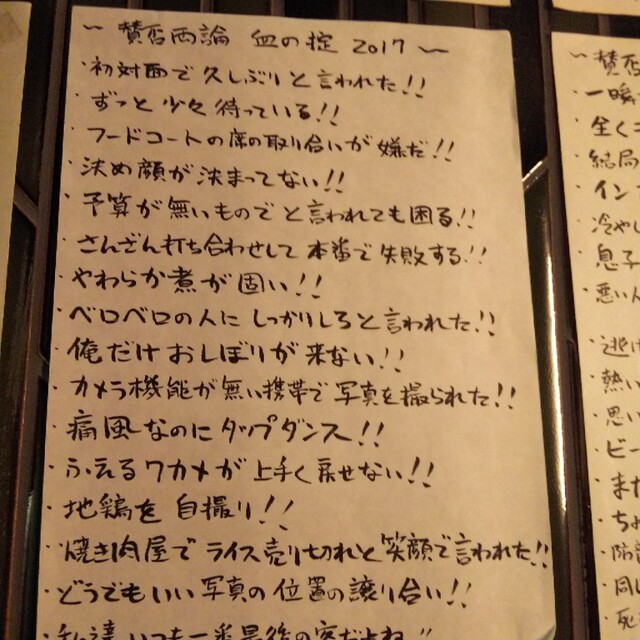 〜 賛否両論 血の掟 2017 〜
・初対面で久しぶりと言われた!!
・ずっと少々待っている!!
・フードコートの席の取り合いが嫌だ!!
・決め顔が決まってない!!
・予算が無いものでと言われても困る!!
・さんざん打ち合わせして本番で失敗する!!
・やわらか煮が固い!!
・ベロベロの人にしっかりしろと言われた!!
・俺だけおしぼりが来ない!!
・カメラ機能が無い携帯で写真を撮られた!!
・痛風なのにタップダンス!!
・ふえるワカメが上手く戻せない!!
・地鶏を自撮り!!
・焼き肉屋でライス売り切れと笑顔で言われた!!
・どうでもいい写真の位置の譲り合い!!
・私達いつも一番最後の客だよね!!
〜 賛否
・一瞬
・全く
・結局
・イン
・冷やし
・息子
・悪い人
・逃げ
・熱い
・思い
・ビー
・また
・ちょ
・防
・同じ
・死